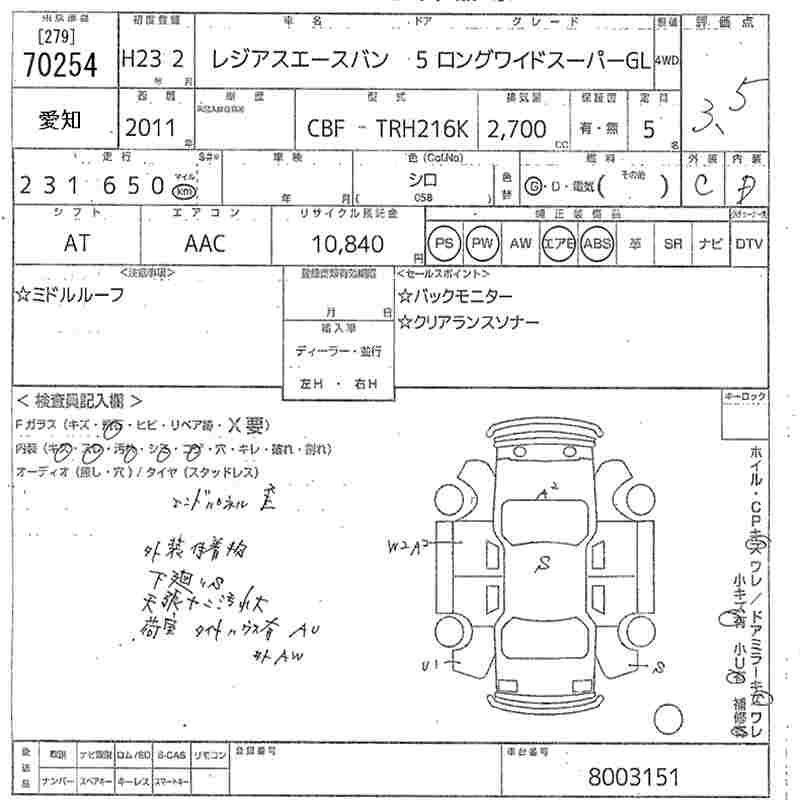 [279]
70254
初度登録
H23 2
年 月
車名
ドア
グレード
レジアスエースバン 5 ロングワイドスーパーGL
4WD
評価点
3.5
愛知
2011
年
型式
CBF - TRH216K
排気量
2,700
CC
保証書
有・無
定員
5
名
走行
231650
マイル
km
車検
年 月
色(Col.No)
シロ
( 058 )
色替
燃料
G・D・電気( その他 )
外装
C
内装
D
シフト
AT
エアコン
AAC
リサイクル預託金
10,840
円
純正装備品
PS PW AW エアB ABS 革 SR ナビ DTV
<注意事項>
☆ミドルルーフ
登録書類有効期限
月 日
輸入車
ディーラー・並行
左H ・ 右H
<セールスポイント>
☆バックモニター
☆クリアランスソナー
<検査員記入欄>
Fガラス(キズ・飛石・ヒビ・リペア跡・X要)
内装(キズ・スレ・汚れ・シミ・コゲ・穴・キレ・破れ・割れ)
オーディオ(無し・穴)/タイヤ(スタッドレス)
外装付着物
下廻りS
荷室
AW
キーロック
A2
W2A2
S
U1
S
ホイル・CPキズ ワレ/ドアミラーキズワレ
小キズ有 小U有 補修有
後送品
取説 ナビ取説 ロム/SD B-CAS リモコン
ナンバー スペアキー キーレス スマートキー
登録番号
車台番号
8003151